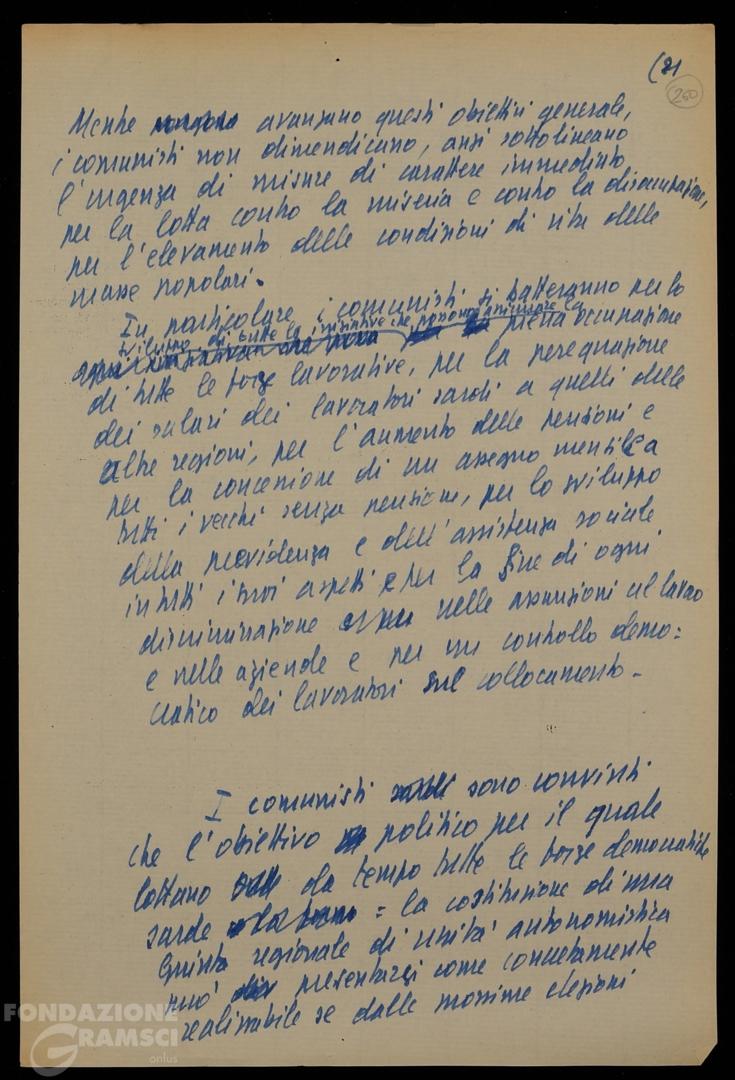 (21
250
Mentre avanzano questi obiettivi generale,
i comunisti non dimendicano, anzi sottolineano
l'urgenza di misure di carattere immediato
per la lotta contro la miseria e contro la disoccupazione,
per l'elevamento delle condizioni di vita delle
masse popolari.
In particolare i comunisti si batteranno per lo
sviluppo di tutte le iniziative che possono assicurare la
piena occupazione
di tutte le forze lavorative, per la perequazione
dei salari dei lavoratori sardi a quelli delle
altre regioni, per l'aumento delle pensioni e
per la concessione di un assegno mensile a
tutti i vecchi senza pensione, per lo sviluppo
della previdenza e dell'assistenza sociale
in tutti i suoi aspetti e per la fine di ogni
discriminazione nelle assunzioni al lavoro
e nelle aziende e per un controllo demo=
cratico dei lavoratori sul collocamento.
I comunisti sono convinti
che l'obiettivo politico per il quale
lottano da tempo tutte le forze democratiche
sarde = la costituzione di una
Giunta regionale di unità autonomistica
può presentarsi come concretamente
realizzabile se dalle prossime elezioni
FONDAZIONE
GRAMSCI
onlus